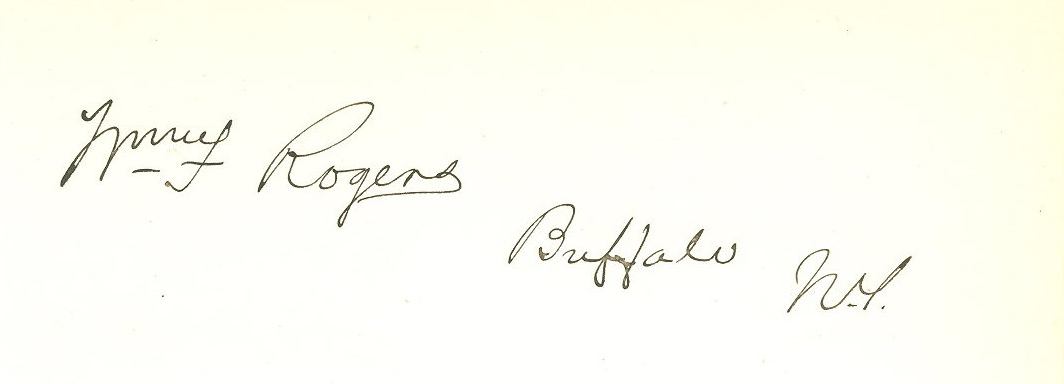 Wm F Rogers
Buffalo N.Y.